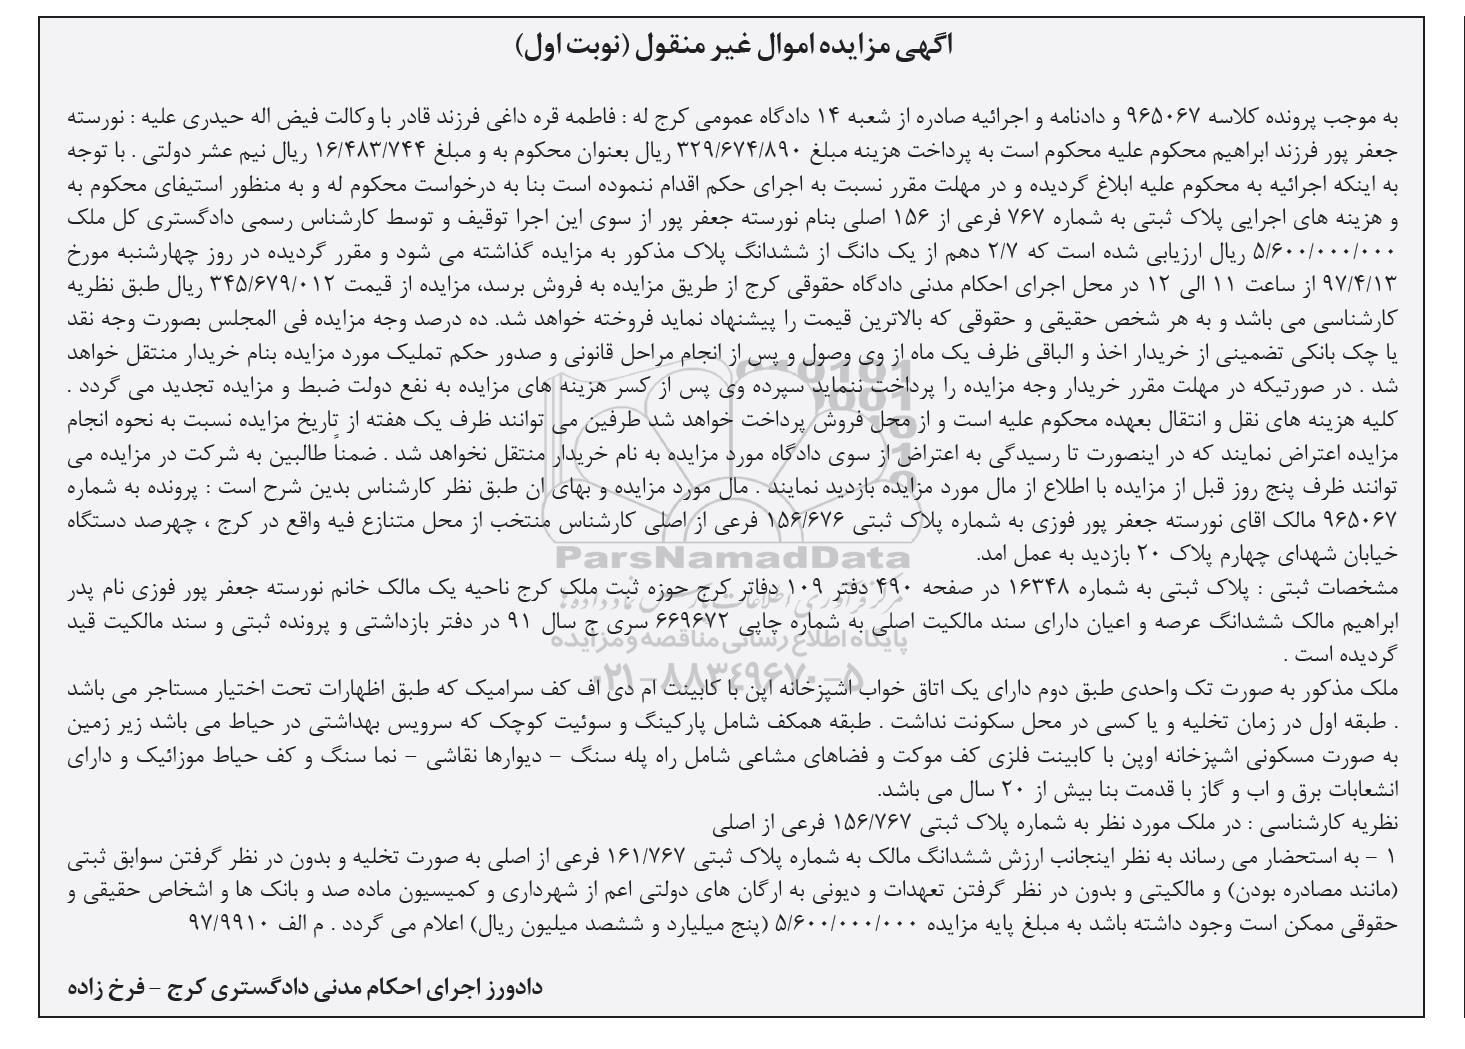 اگهی مزایده اموال غیر منقول (نوبت اول)
به موجب پرونده کلاسه ۹۶۵۰۶۷ و دادنامه و اجرائیه صادره از شعبه ۱۴ دادگاه عمومی کرج له : فاطمه قره داغی فرزند قادر با وکالت فیض اله حیدری علیه : نورسته
جعفر پور فرزند ابراهیم محکوم علیه محکوم است به پرداخت هزینه مبلغ ۳۲۹/۶۷۴/۸۹۰ ریال بعنوان محکوم به و مبلغ ۱۶/۴۸۳/۷۴۴ ریال نیم عشر دولتی . با توجه
به اینکه اجرائیه به محکوم علیه ابلاغ گردیده و در مهلت مقرر نسبت به اجرای حکم اقدام ننموده است بنا به درخواست محکوم له و به منظور استیفای محکوم به
و هزینه های اجرایی پلاک ثبتی به شماره ۷۶۷ فرعی از ۱۵۶ اصلی بنام نورسته جعفر پور از سوی این اجرا توقیف و توسط کارشناس رسمی دادگستری کل ملک
۵/۶۰۰/۰۰۰/۰۰۰ ریال ارزیابی شده است که ۲/۷ دهم از یک دانگ از ششدانگ پلاک مذکور به مزایده گذاشته می شود و مقرر گردیده در روز چهارشنبه مورخ
۹۷/۴/۱۳ از ساعت ۱۱ الی ۱۲ در محل اجرای احکام مدنی دادگاه حقوقی کرج از طریق مزایده به فروش برسد، مزایده از قیمت ۳۴۵/۶۷۹/۰۱۲ ریال طبق نظریه
کارشناسی می باشد و به هر شخص حقیقی و حقوقی که بالاترین قیمت را پیشنهاد نماید فروخته خواهد شد. ده درصد وجه مزایده فی المجلس بصورت وجه نقد
یا چک بانکی تضمینی از خریدار اخذ و الباقی ظرف یک ماه از وی وصول و پس از انجام مراحل قانونی و صدور حکم تملیک مورد مزایده بنام خریدار منتقل خواهد
شد . در صورتیکه در مهلت مقرر خریدار وجه مزایده را پرداخت ننماید سپرده وی پس از کسر هزینه های مزایده به نفع دولت ضبط و مزایده تجدید می گردد .
کلیه هزینه های نقل و انتقال بعهده محکوم علیه است و از محل فروش پرداخت خواهد شد طرفین می توانند ظرف یک هفته از تاریخ مزایده نسبت به نحوه انجام
مزایده اعتراض نمایند که در اینصورت تا رسیدگی به اعتراض از سوی دادگاه مورد مزایده به نام خریدار منتقل نخواهد شد . ضمناً طالبین به شرکت در مزایده می
توانند ظرف پنج روز قبل از مزایده با اطلاع از مال مورد مزایده بازدید نمایند . مال مورد مزایده و بهای ان طبق نظر کارشناس بدین شرح است : پرونده به شماره
۹۶۵۰۶۷ مالک اقای نورسته جعفر پور فوزی به شماره پلاک ثبتی ۱۵۶/۶۷۶ فرعی از اصلی کارشناس منتخب از محل متنازع فیه واقع در کرج ، چهرصد دستگاه
خیابان شهدای چهارم پلاک ۲۰ بازدید به عمل امد.
ParsNamadData
مشخصات ثبتی : پلاک ثبتی به شماره ۱۶۳۴۸ در صفحه ۴۹۰ دفتر ۱۰۹ دفاتر کرج حوزه ثبت ملک کرج ناحیه یک مالک خانم نورسته جعفر پور فوزی نام پدر
ابراهیم مالک ششدانگ عرصه و اعیان دارای سند مالکیت اصلی به شماره چاپی ۶۶۹۶۷۲ سری ج سال ۹۱ در دفتر بازداشتی و پرونده ثبتی و سند مالکیت قید
پایگاه اطلاع رسانی مناقصه و مزایده
گردیده است .
۰۲۱-۸۸۳۴۹۶۷۰-۵
ملک مذکور به صورت تک واحدی طبق دوم دارای یک اتاق خواب اشپزخانه اپن با کابینت ام دی اف کف سرامیک که طبق اظهارات تحت اختیار مستاجر می باشد
. طبقه اول در زمان تخلیه و یا کسی در محل سکونت نداشت . طبقه همکف شامل پارکینگ و سوئیت کوچک که سرویس بهداشتی در حیاط می باشد زیر زمین
به صورت مسکونی اشپزخانه اوپن با کابینت فلزی کف موکت و فضاهای مشاعی شامل راه پله سنگ – دیوارها نقاشی – نما سنگ و کف حیاط موزائیک و دارای
انشعابات برق و اب و گاز با قدمت بنا بیش از ۲۰ سال می باشد.
نظریه کارشناسی : در ملک مورد نظر به شماره پلاک ثبتی ۱۵۶/۷۶۷ فرعی از اصلی
۱ – به استحضار می رساند به نظر اینجانب ارزش ششدانگ مالک به شماره پلاک ثبتی ۱۶۱/۷۶۷ فرعی از اصلی به صورت تخلیه و بدون در نظر گرفتن سوابق ثبتی
(مانند مصادره بودن) و مالکیتی و بدون در نظر گرفتن تعهدات و دیونی به ارگان های دولتی اعم از شهرداری و کمیسیون ماده صد و بانک ها و اشخاص حقیقی و
حقوقی ممکن است وجود داشته باشد به مبلغ پایه مزایده ۵/۶۰۰/۰۰۰/۰۰۰ (پنج میلیارد و ششصد میلیون ریال) اعلام می گردد . م الف ۹۷/۹۹۱۰
دادورز اجرای احکام مدنی دادگستری کرج – فرخ زاده